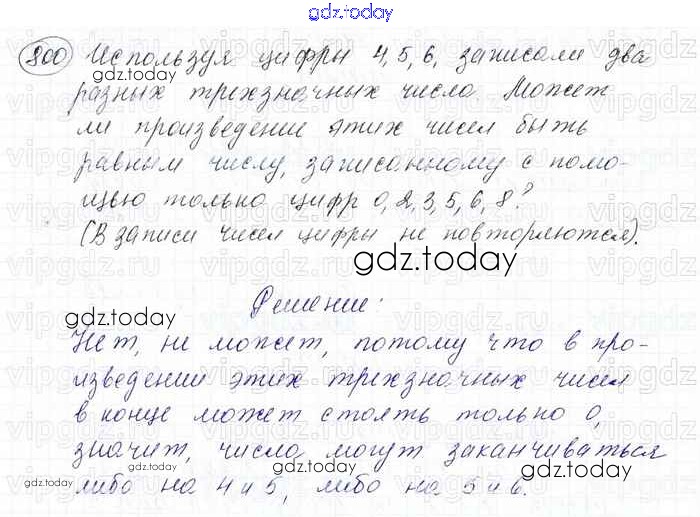 gdz.today
800 Используя цифры 4, 5, 6, записали два
разных трехзначных числа. Может
ли произведение этих чисел быть
равным числу, записанному с помо-
щью только цифр 0, 2, 3, 5, 6, 8?
(В записи чисел цифры не повторяются).
Решение:
Нет, не может, потому что в про-
изведении этих трехзначных чисел
в конце может стоять только 0,
значит, числа могут заканчиваться
либо на 4 и 5, либо на 5 и 6.
gdz.today
gdz.today
gdz.today
gdz.today
gdz.today